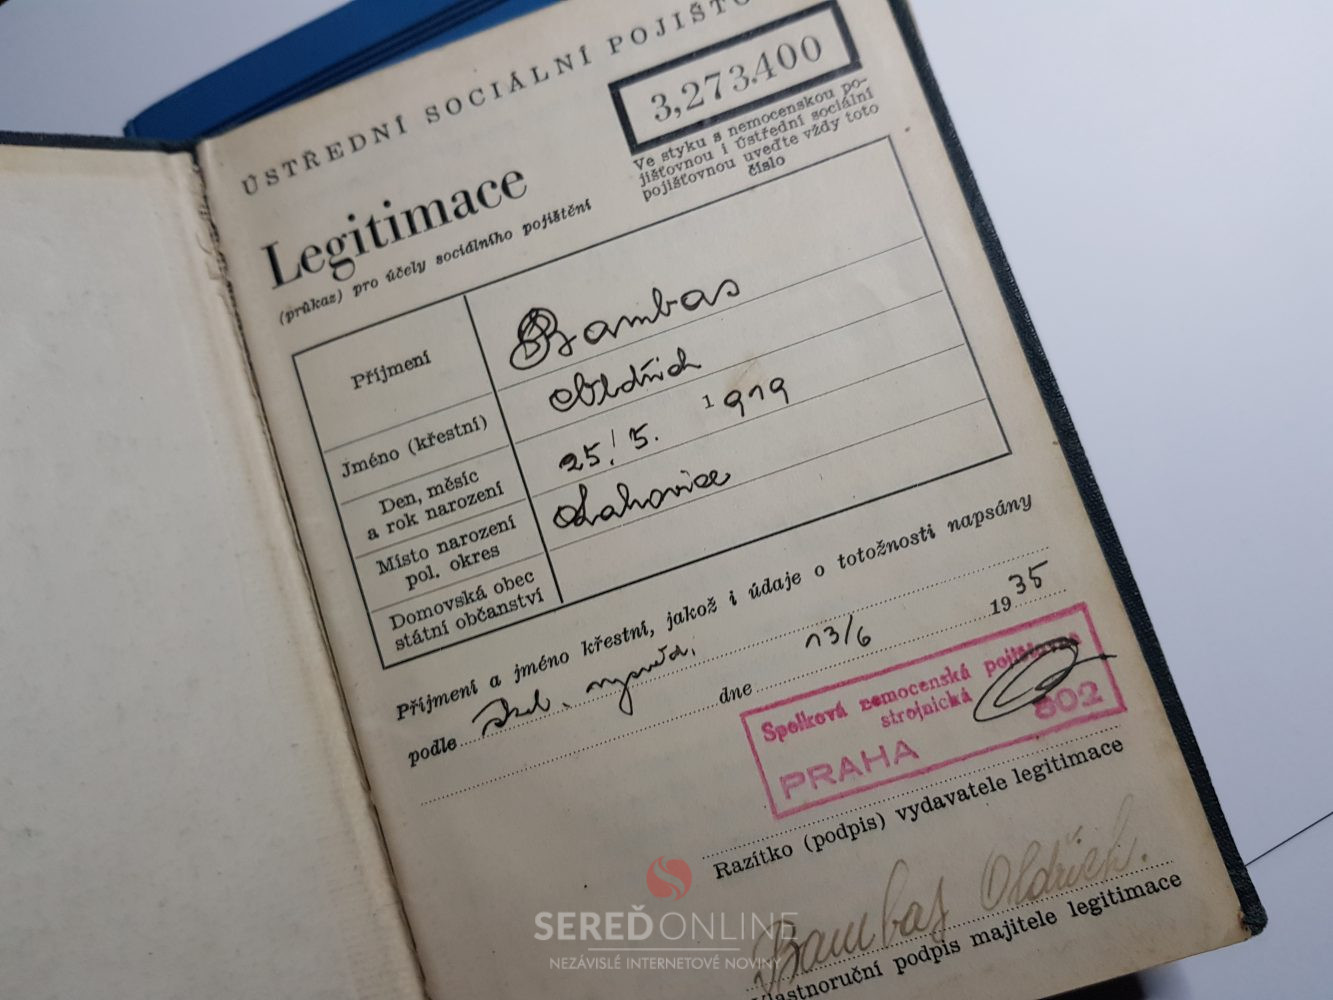 ÚSTŘEDNÍ SOCIÁLNÍ POJIŠŤO
3,273.400
Ve styku s nemocenskou po-
jišťovnou i Ústřední sociální
pojišťovnou uveďte vždy toto
číslo
Legitimace
(průkaz) pro účely sociálního pojištění
Příjmení Bambas
Jméno (křestní) Oldřich
Den, měsíc
a rok narození 25. 5. 1919
Místo narození
pol. okres Lahovice
Domovská obec
státní občanství
Příjmení a jméno křestní, jakož i údaje o totožnosti napsány
podle
dne 13/6 1935
Spolková nemocenská pojišťovna
strojnická
PRAHA 802
Razítko (podpis) vydavatele legitimace
Bambas Oldřich.
Vlastnoruční podpis majitele legitimace
SEREĎONLINE
NEZÁVISLÉ INTERNETOVÉ NOVINY